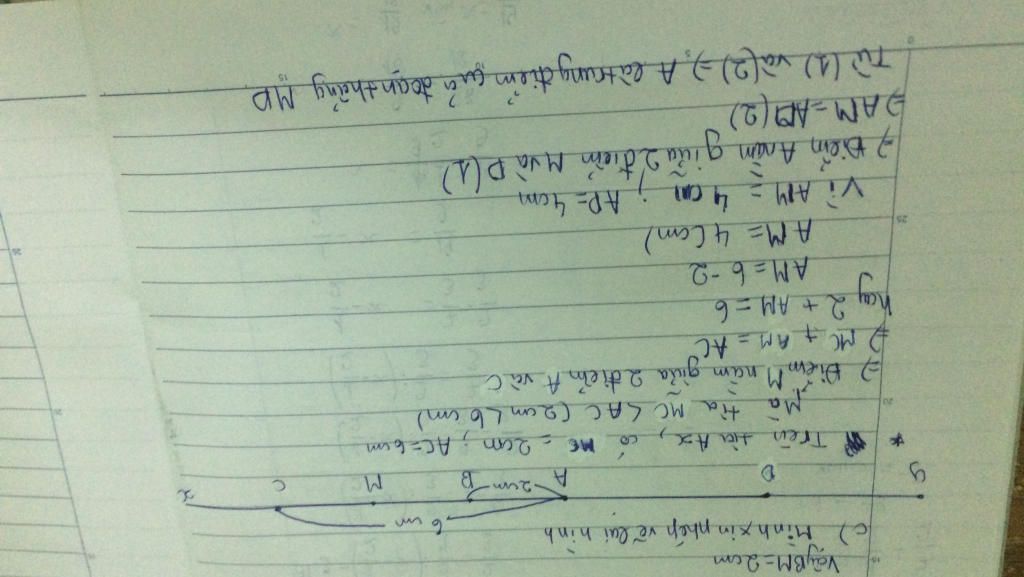 Vậy BM = 2cm
c) Mình xin phép vẽ lại hình
6 cm
2cm
y D A B M C x
* Trên tia Ax, có MC = 2cm; AC = 6cm
Mà tia MC < AC (2cm < 6cm)
=> Điểm M nằm giữa 2 điểm A và C
=> MC + AM = AC
hay 2 + AM = 6
AM = 6 - 2
AM = 4 (cm)
Vì AM = 4 cm; AD = 4cm
=> Điểm A nằm giữa 2 điểm M và D (1)
=> AM = AD (2)
Từ (1) và (2) => A là trung điểm của đoạn thẳng MD